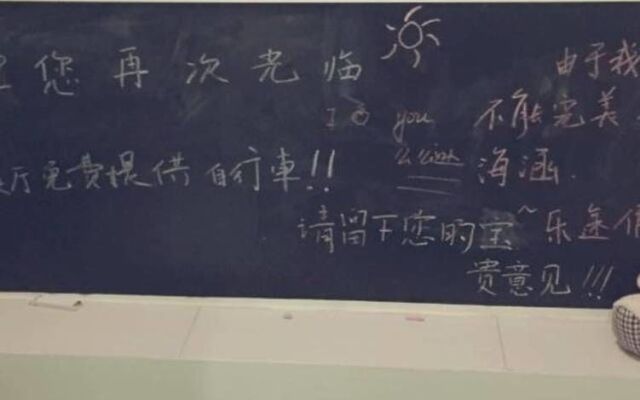 您再次光临
由于我
I ♡ you 不能完美
厅免费提供自行車!!
么么哒 海涵.
请留下您的宝~乐途
贵意见!!!